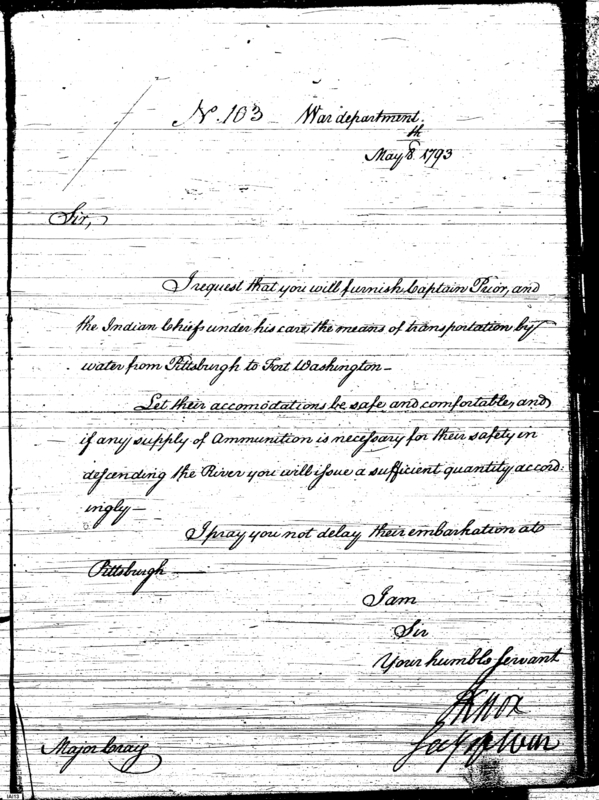 No. 103 War department.
May 8th 1793
Sir,
I request that you will furnish Captain Prior, and
the Indian Chiefs under his care, the means of transportation by
water from Pittsburgh to Fort Washington—
Let their accomodations be safe and comfortable, and
if any supply of Ammunition is necessary for their safety in
descending the River you will issue a sufficient quantity accord:
ingly—
I pray you not delay their embarkation at
Pittsburgh—
I am
Sir
Your humble Servant
HKnox
Secy of War
Major Craig